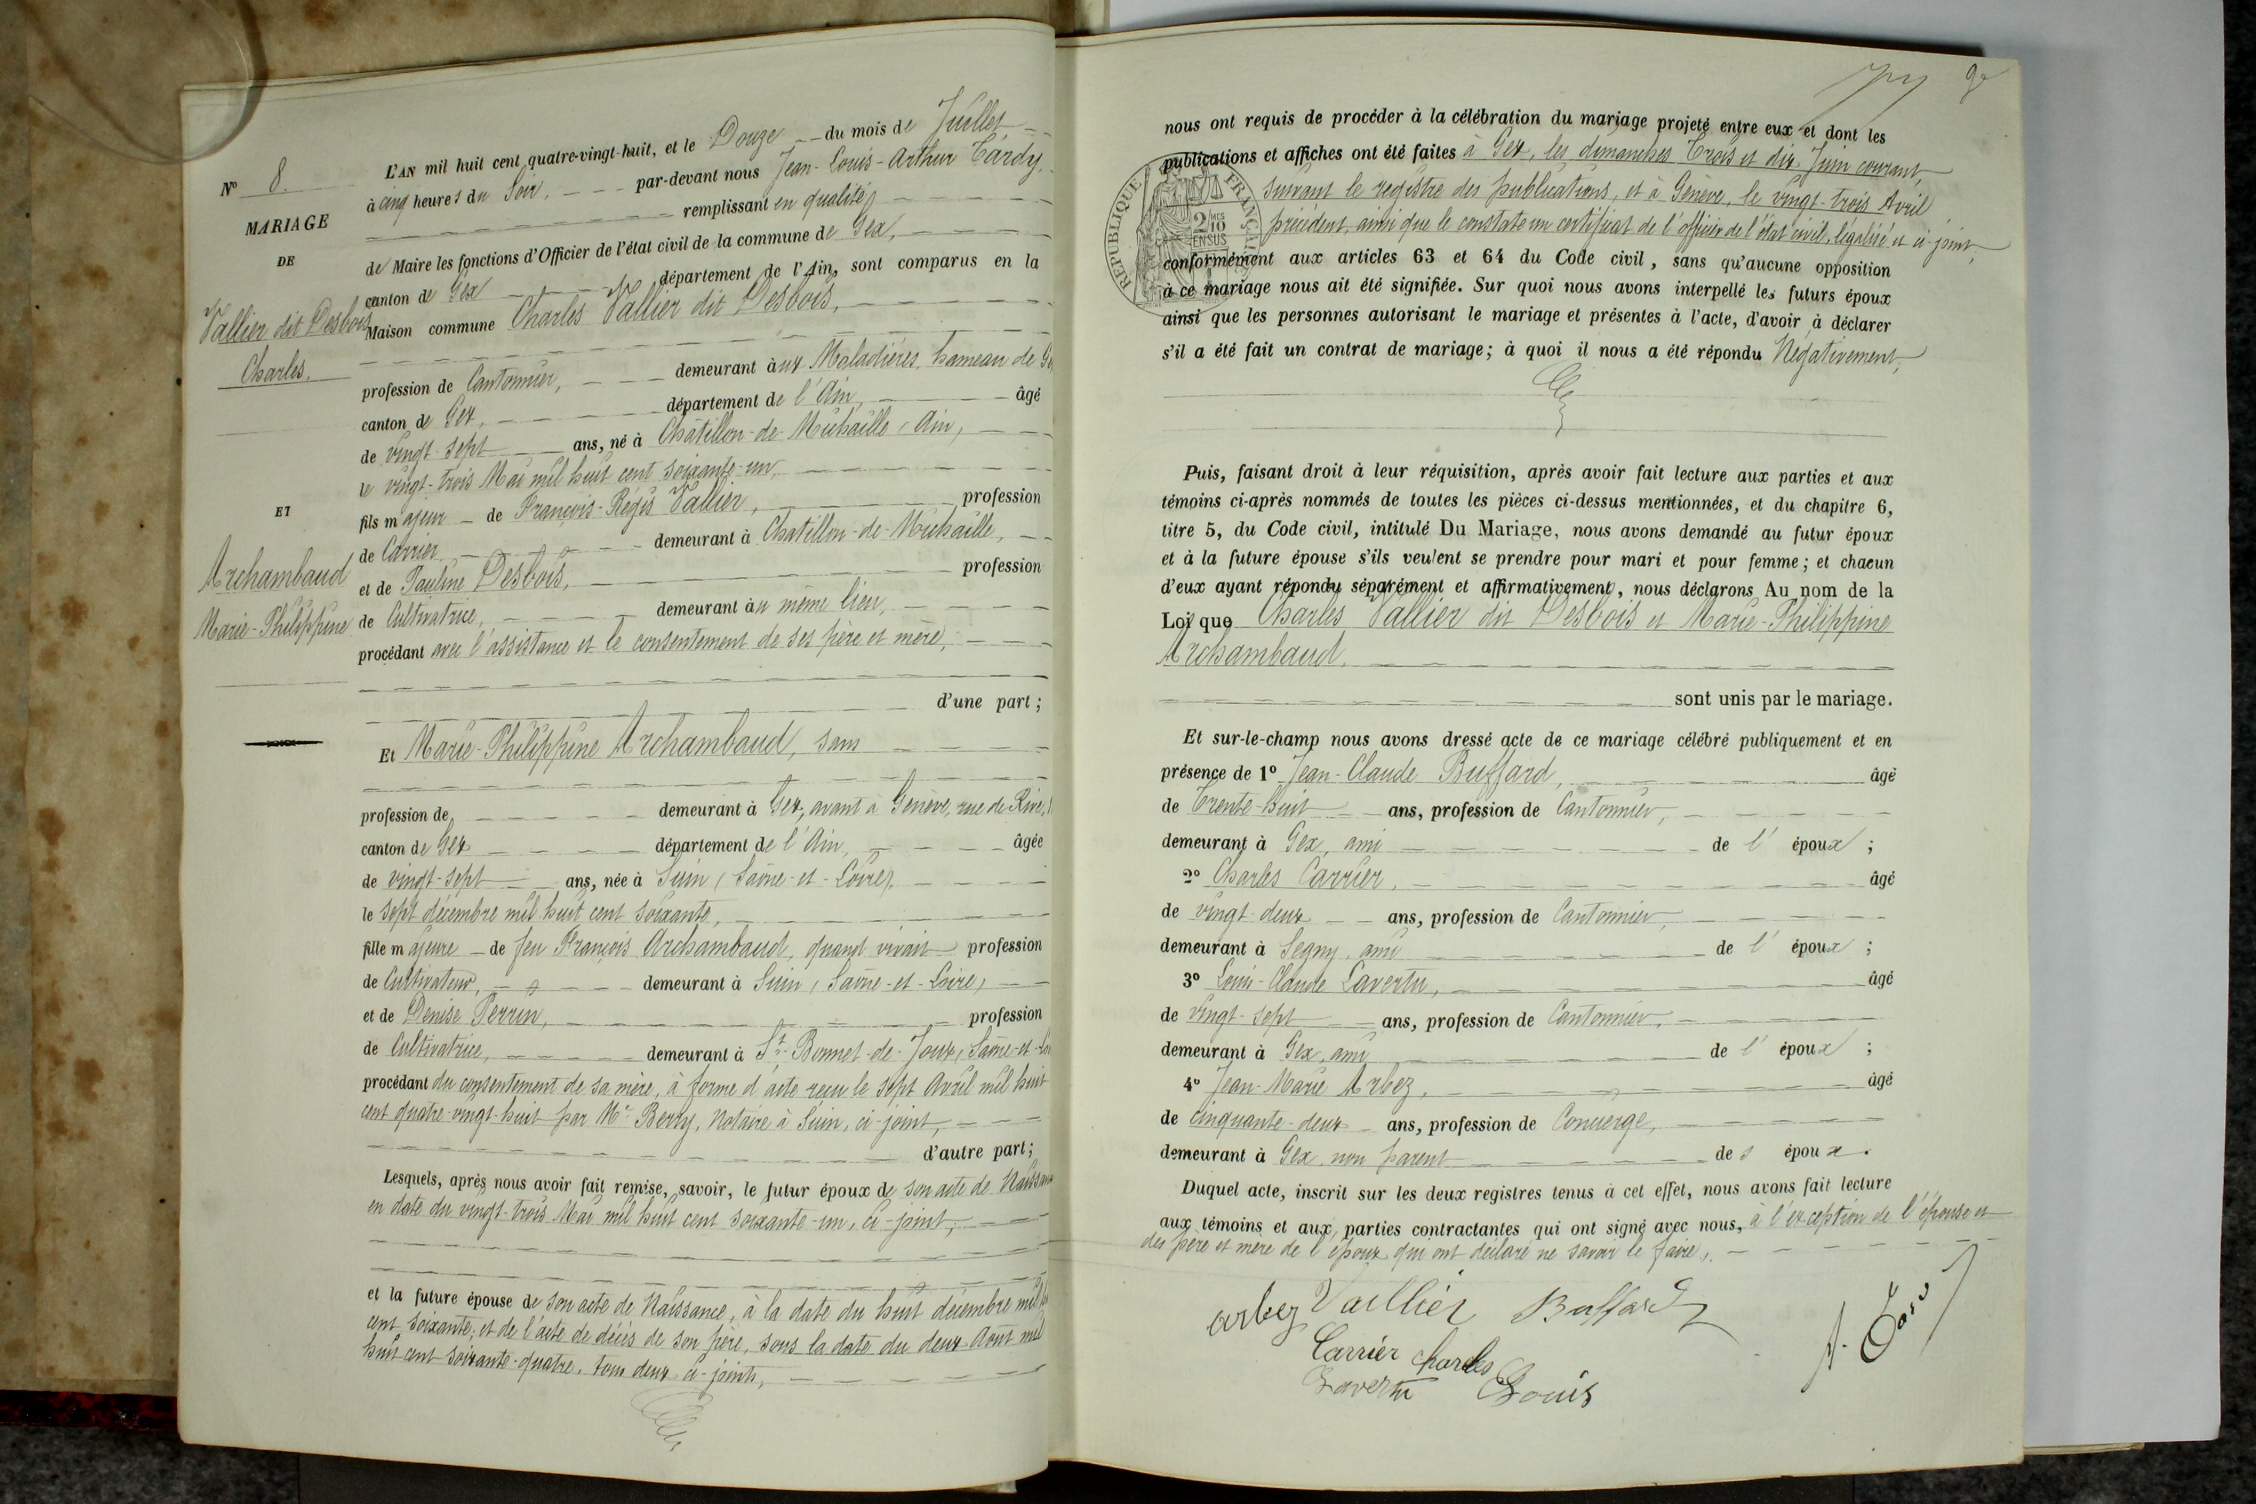 L'AN mil huit cent quatre-vingt-huit, et le Douze du mois de Juillet
Nº 8.
à cinq heures du Soir, par-devant nous Jean-Louis-Arthur Tardy,
MARIAGE
remplissant en qualité
DE
de Maire les fonctions d'Officier de l'état civil de la commune de Gex,
canton de Gex département de l'Ain, sont comparus en la
Vallier dit Desbois
Maison commune Charles Vallier dit Desbois,
Charles.
profession de Cantonnier, demeurant aux Maladières, hameau de
canton de Gex, département de l'Ain, âgé
de vingt-sept ans, né à Châtillon-de-Michaille, Ain,
le vingt-trois Mai mil huit cent soixante-un,
ET
fils majeur de François-Régis Vallier, profession
de Carrier, demeurant à Chatillon-de-Michaille,
Archambaud
et de Pauline Desbois, profession
Marie-Philippine
de Cultivatrice, demeurant au même lieu,
procédant avec l'assistance et le consentement de ses père et mère,
d'une part ;
Et Marie-Philippine Archambaud, sans
profession de demeurant à Gex, avant à Genève, rue de Rive,
canton de Gex département de l'Ain, âgée
de vingt-sept ans, née à Suin (Saône-et-Loire),
le sept décembre mil huit cent soixante,
fille majeure de feu François Archambaud, quand vivait profession
de Cultivateur, demeurant à Suin (Saône-et-Loire)
et de Denise Perrin, profession
de Cultivatrice, demeurant à St-Bonnet-de-Joux, Saône-et-
procédant du consentement de sa mère, à forme d'acte reçu le sept Avril mil huit
cent quatre-vingt-huit par Me Berry, Notaire à Suin, ci-joint,
d'autre part ;
Lesquels, après nous avoir fait remise, savoir, le futur époux de son acte de Naissance
en date du vingt-trois Mai mil huit cent soixante-un, ci-joint,
et la future épouse de son acte de Naissance, à la date du huit décembre mil
cent soixante, et de l'acte de décès de son père, sous la date du deux Août mil
huit cent soixante-quatre, tous deux ci-joints,
nous ont requis de procéder à la célébration du mariage projeté entre eux et dont les
publications et affiches ont été faites à Gex, les dimanches Trois et dix Juin courant,
suivant le registre des publications, et à Genève, le vingt-trois Avril
précédent, ainsi que le constate un certificat de l'officier de l'état civil, légalisé et ci-joint,
RÉPUBLIQUE FRANÇAISE
2 10
MES
EN SUS
conformément aux articles 63 et 64 du Code civil, sans qu'aucune opposition
à ce mariage nous ait été signifiée. Sur quoi nous avons interpellé les futurs époux
ainsi que les personnes autorisant le mariage et présentes à l'acte, d'avoir à déclarer
s'il a été fait un contrat de mariage ; à quoi il nous a été répondu Négativement,
Puis, faisant droit à leur réquisition, après avoir fait lecture aux parties et aux
témoins ci-après nommés de toutes les pièces ci-dessus mentionnées, et du chapitre 6,
titre 5, du Code civil, intitulé Du Mariage, nous avons demandé au futur époux
et à la future épouse s'ils veulent se prendre pour mari et pour femme ; et chacun
d'eux ayant répondu séparément et affirmativement, nous déclarons Au nom de la
Loi que Charles Vallier dit Desbois et Marie-Philippine
Archambaud,
sont unis par le mariage.
Et sur-le-champ nous avons dressé acte de ce mariage célébré publiquement et en
présence de 1º Jean-Claude Buffard, âgé
de Trente-huit ans, profession de Cantonnier,
demeurant à Gex, ami de l'époux ;
2º Charles Carrier, âgé
de vingt-deux ans, profession de Cantonnier,
demeurant à Segny, ami de l'époux ;
3º Louis-Claude Lavertu, âgé
de vingt-sept ans, profession de Cantonnier,
demeurant à Gex, ami de l'époux ;
4º Jean-Marie Arbez, âgé
de cinquante-deux ans, profession de Concierge,
demeurant à Gex, non parent des époux.
Duquel acte, inscrit sur les deux registres tenus à cet effet, nous avons fait lecture
aux témoins et aux parties contractantes qui ont signé avec nous, à l'exception de l'épouse et
des père et mère de l'époux qui ont déclaré ne savoir le faire.
arbez Vaillier Buffard
Carrier Charles
Lavertu Louis